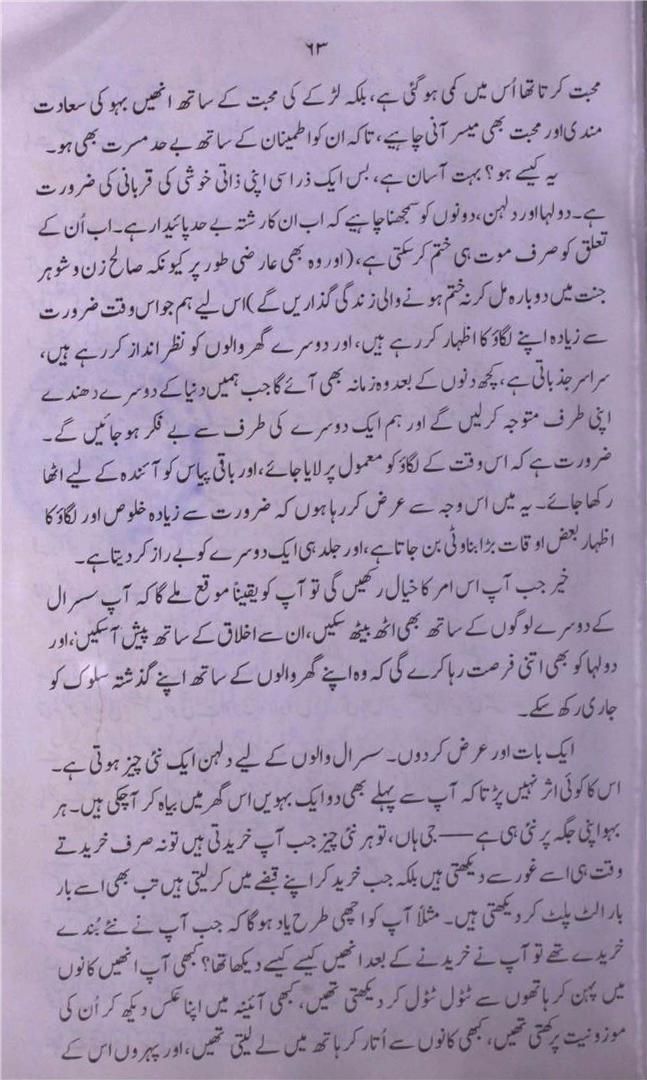 ۶۳
محبت کرتا تھا اُس میں کمی ہو گئی ہے، بلکہ لڑکے کی محبت کے ساتھ انھیں بہو کی سعادت
مندی اور محبت بھی میسر آنی چاہیے، تاکہ ان کو اطمینان کے ساتھ بے حد مسرت بھی ہو۔
یہ کیسے ہو؟ بہت آسان ہے، بس ایک ذرا سی اپنی ذاتی خوشی کی قربانی کی ضرورت
ہے۔ دولہا اور دلہن، دونوں کو سمجھنا چاہیے کہ اب ان کا رشتہ بے حد پائیدار ہے۔ اب اُن کے
تعلق کو صرف موت ہی ختم کر سکتی ہے، (اور وہ بھی عارضی طور پر کیونکہ صالح زن و شوہر
جنت میں دوبارہ مل کر نہ ختم ہونے والی زندگی گذاریں گے) اس لیے ہم جو اس وقت ضرورت
سے زیادہ اپنے لگاؤ کا اظہار کر رہے ہیں، اور دوسرے گھر والوں کو نظر انداز کر رہے ہیں،
سراسر جذباتی ہے، کچھ دنوں کے بعد وہ زمانہ بھی آئے گا جب ہمیں دنیا کے دوسرے دھندے
اپنی طرف متوجہ کرلیں گے اور ہم ایک دوسرے کی طرف سے بے فکر ہو جائیں گے۔
ضرورت ہے کہ اس وقت کے لگاؤ کو معمول پر لایا جائے، اور باقی پیاس کو آئندہ کے لیے اٹھا
رکھا جائے۔ یہ میں اس وجہ سے عرض کر رہا ہوں کہ ضرورت سے زیادہ خلوص اور لگاؤ کا
اظہار بعض اوقات بڑا بناوٹی بن جاتا ہے، اور جلد ہی ایک دوسرے کو بے راز کر دیتا ہے۔
خیر جب آپ اس امر کا خیال رکھیں گی تو آپ کو یقیناً موقع ملے گا کہ آپ سسرال
کے دوسرے لوگوں کے ساتھ بھی اٹھ بیٹھ سکیں، ان سے اخلاق کے ساتھ پیش آ سکیں، اور
دولہا کو بھی اتنی فرصت رہا کرے گی کہ وہ اپنے گھر والوں کے ساتھ اپنے گذشتہ سلوک کو
جاری رکھ سکے۔
ایک بات اور عرض کردوں۔ سسرال والوں کے لیے دلہن ایک نئی چیز ہوتی ہے۔
اس کا کوئی اثر نہیں پڑتا کہ آپ سے پہلے بھی دو ایک بہویں اس گھر میں بیاہ کر آچکی ہیں۔ ہر
بہو اپنی جگہ پر نئی ہی ہے —— جی ہاں، تو ہر نئی چیز جب آپ خریدتی ہیں تو نہ صرف خریدتے
وقت ہی اسے غور سے دیکھتی ہیں بلکہ جب خرید کر اپنے قبضے میں کر لیتی ہیں تب بھی اسے بار
بار الٹ پلٹ کر دیکھتی ہیں۔ مثلاً آپ کو اچھی طرح یاد ہوگا کہ جب آپ نے نئے بُندے
خریدے تھے تو آپ نے خریدنے کے بعد انھیں کیسے کیسے دیکھا تھا؟ کبھی آپ انھیں کانوں
میں پہن کر ہاتھوں سے ٹٹول ٹٹول کر دیکھتی تھیں، کبھی آئینہ میں اپنا عکس دیکھ کر اُن کی
موزونیت پرکھتی تھیں، کبھی کانوں سے اُتار کر ہاتھ میں لے لیتی تھیں، اور پہروں اس کے